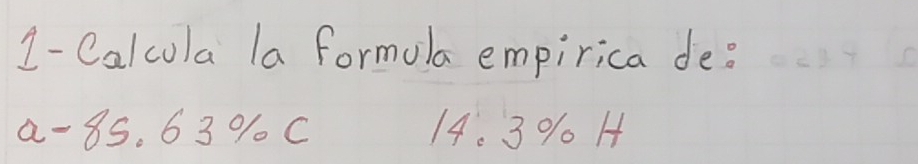 1-Calcula la formula empirica de:
a-85.63%C 14.3% H